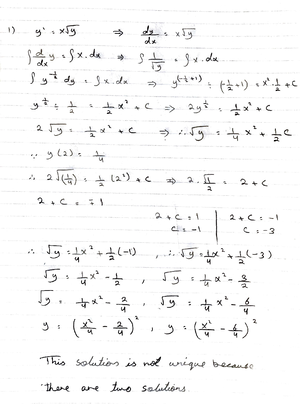 1) y' = x√y ⇒ dy/dx = x√y
∫ d/dx y = ∫ x.dx ⇒ ∫ 1/√y = ∫ x.dx
∫ y^(-1/2) dy = ∫ x.dx ⇒ y^(-1/2+1) ÷ (-1/2+1) = x²·1/2 + C
y^(1/2) ÷ 1/2 = 1/2 x² + C ⇒ 2y^(1/2) = 1/2 x² + C
2√y = 1/2 x² + C ⇒ ∴ √y = 1/4 x² + 1/2 C
∵ y(2) = 1/4
∴ 2√(1/4) = 1/2 (2²) + C ⇒ 2·√1/2 = 2 + C
2 + C = ∓1
2 + C = 1 | 2 + C = -1
C = -1 | C = -3
∴ √y = 1/4 x² + 1/2 (-1) , ∴ √y = 1/4 x² + 1/2 (-3)
√y = 1/4 x² - 1/2 , √y = 1/4 x² - 3/2
√y = 1/4 x² - 2/4 , √y = 1/4 x² - 6/4
y = (x²/4 - 2/4)² , y = (x²/4 - 6/4)²
This solution is not unique because
there are two solutions.